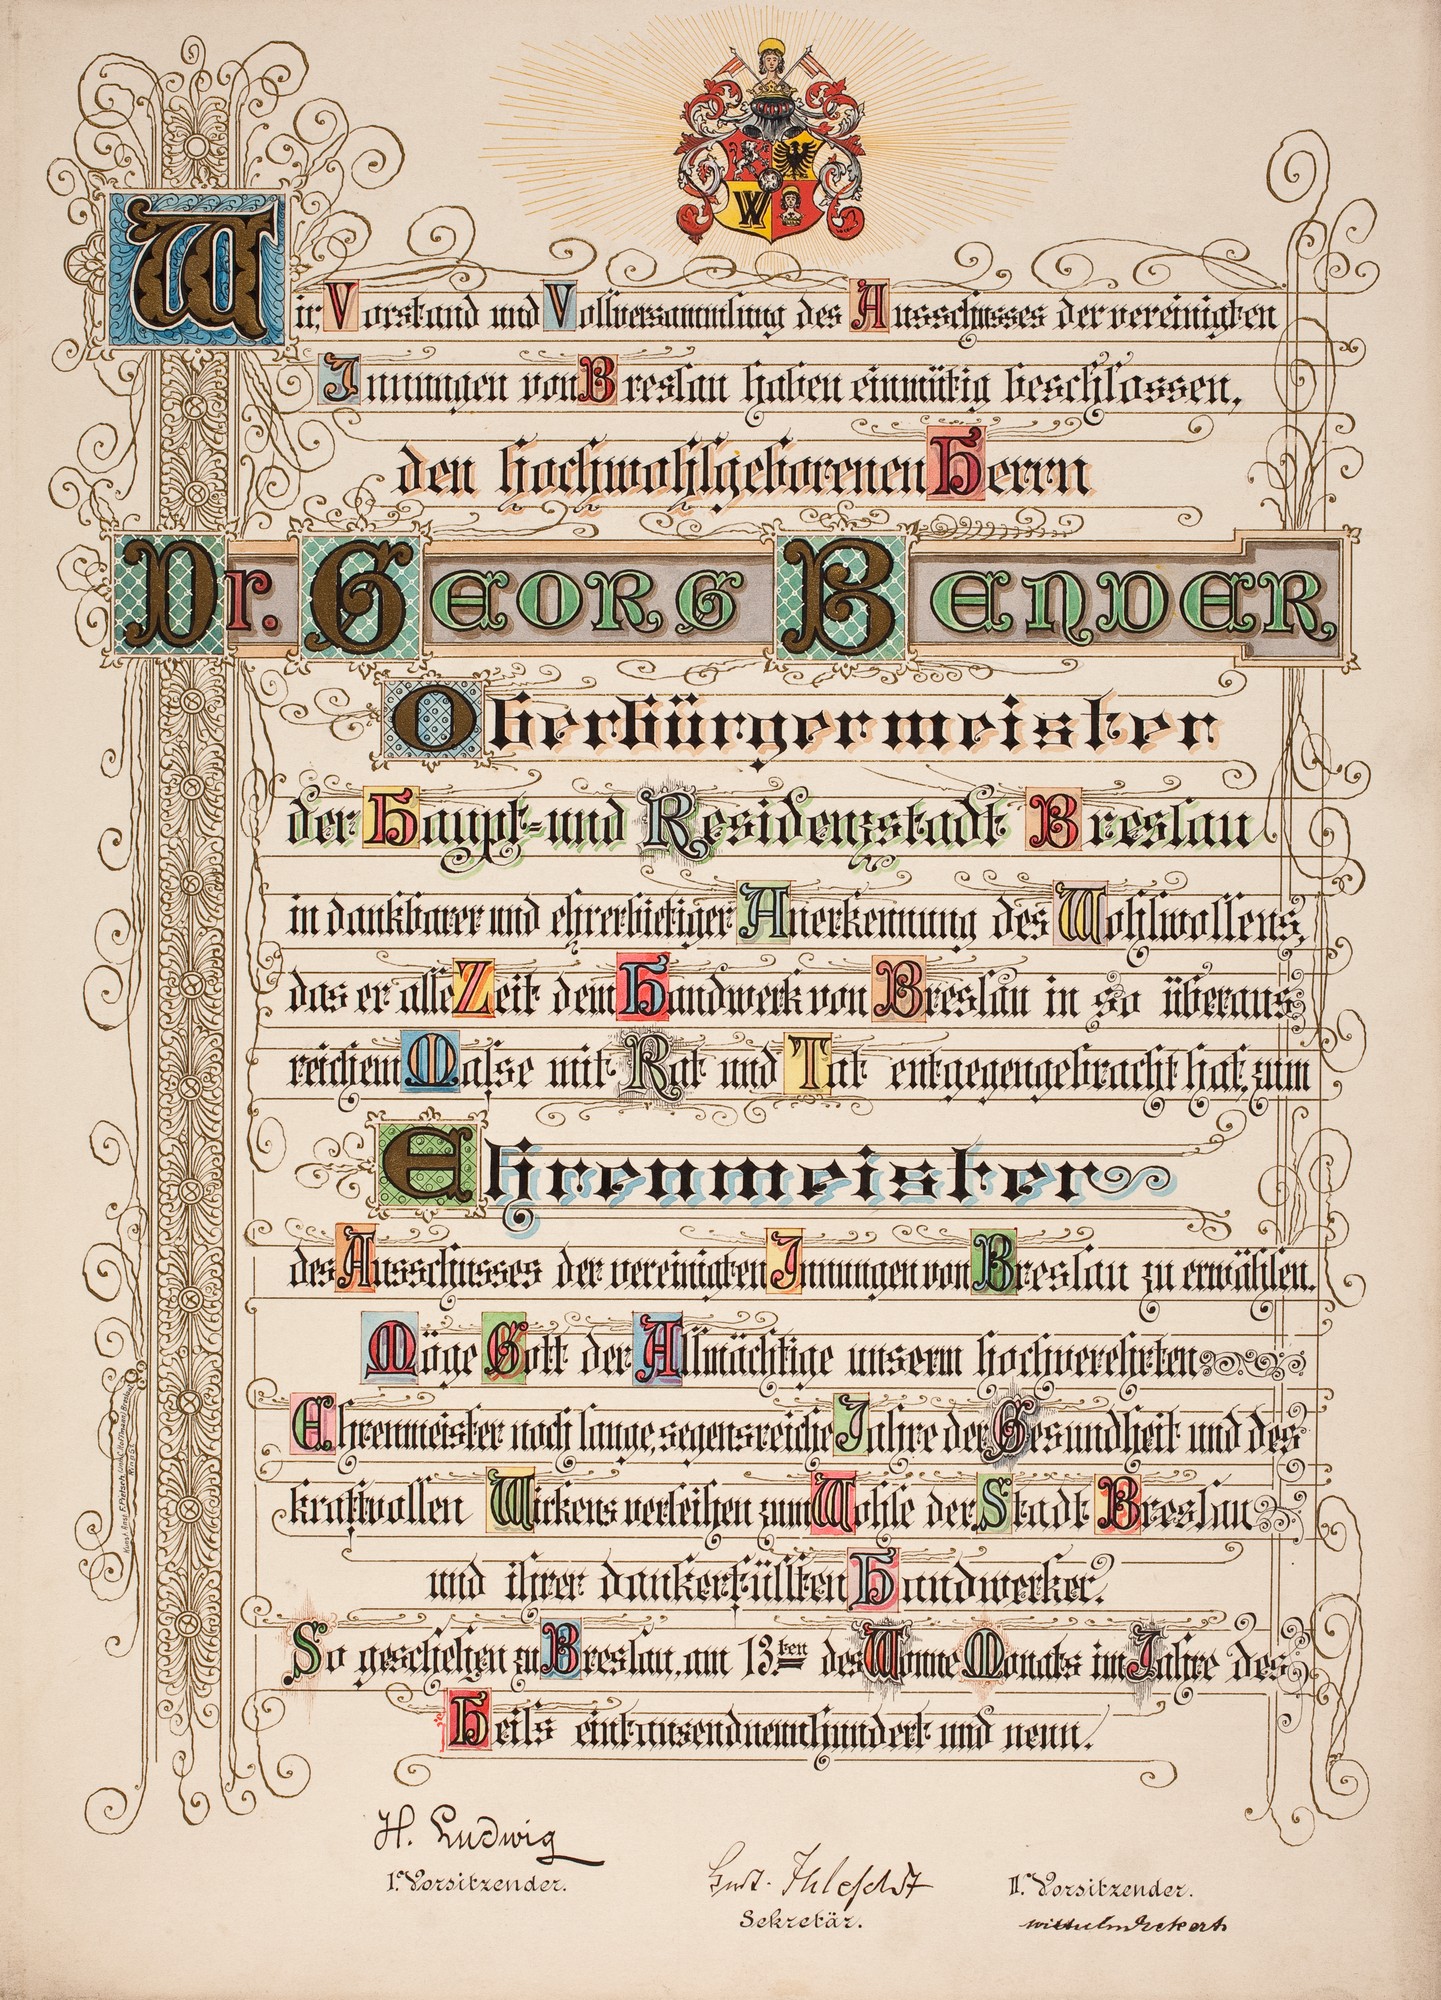 W
Wir, Vorstand und Vollversammlung des Ausschusses der vereinigten
Innungen von Breslau haben einmütig beschlossen,
den hochwohlgeborenen Herrn
Dr. GEORG BENDER
Oberbürgermeister
der Haupt- und Residenzstadt Breslau
in dankbarer und ehrerbietiger Anerkennung des Wohlwollens,
das er alle Zeit dem Handwerk von Breslau in so überaus
reichem Masse mit Rat und Tat entgegengebracht hat, zum
Ehrenmeister
des Ausschusses der vereinigten Innungen von Breslau zu erwählen.
Möge Gott der Allmächtige unserm hochverehrten
Ehrenmeister noch lange, segensreiche Jahre der Gesundheit und des
kraftvollen Wirkens verleihen zum Wohle der Stadt Breslau
und ihrer dankerfüllten Handwerker.
So geschehen zu Breslau, am 13ten des Wonne Monats im Jahre des
Heils eintausendneunhundert und neun.
H. Ludwig
Ir Vorsitzender.
Sekretär.
IIr Vorsitzender.
Wilhelm Eckert